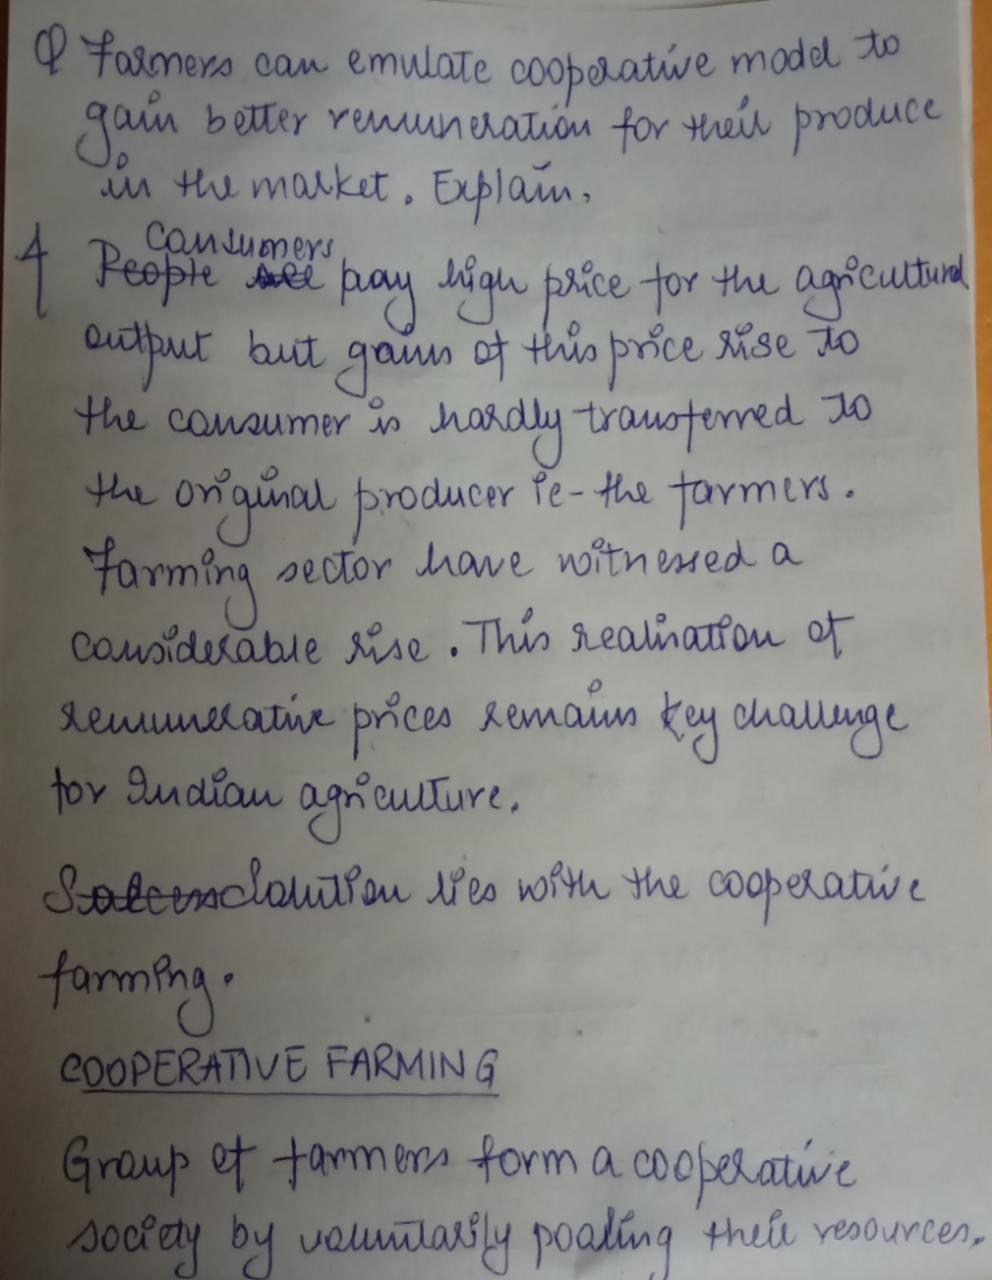 Q Farmers can emulate cooperative model to
gain better remuneration for their produce
in the market. Explain.
Consumers
A People are pay high price for the agricultural
output but gains of this price rise to
the consumer is hardly transferred to
the original producer ie- the farmers.
Farming sector have witnessed a
considerable rise. This realination of
remunerative prices remains key challenge
for Indian agriculture.
Solution lies with the cooperative
farming.
COOPERATIVE FARMING
Group of farmers form a cooperative
society by voluntarily pooling their resources.